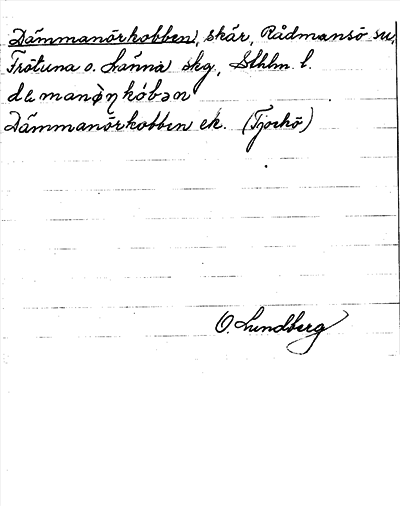 Dämmanörkobben, skär, Rådmansö sn,
Frötuna o. Länna skg, Sthlm. l.
Dämmanörkobben ek. (Tjockö)
O. Lundberg